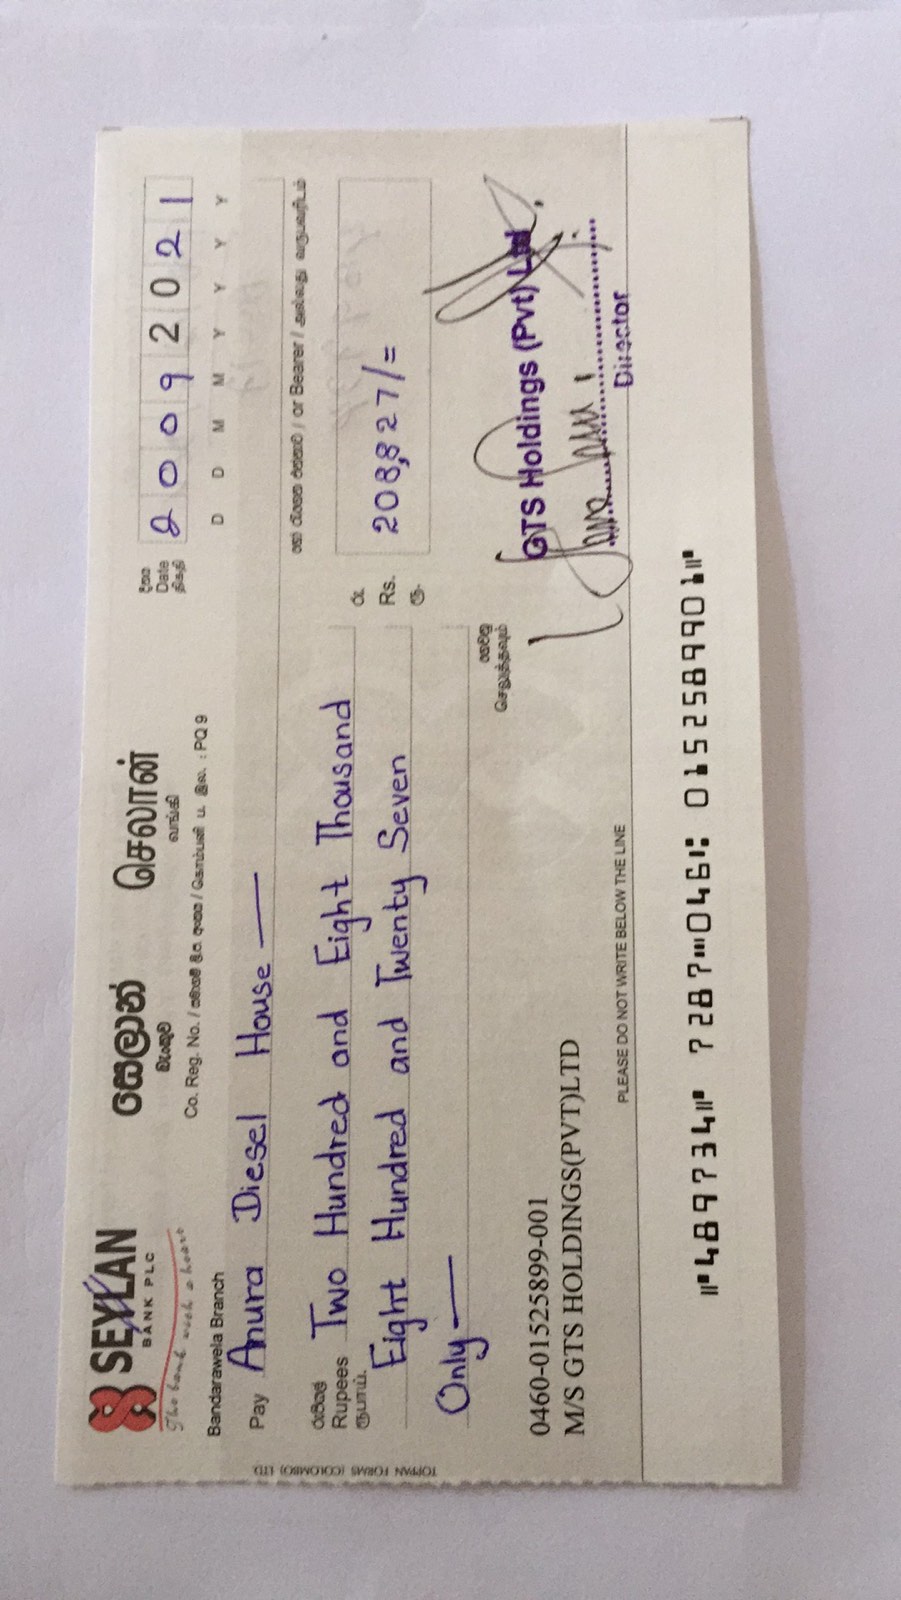 SEYLAN
BANK PLC
The bank with a heart
සෙලාන් செலான்
බැංකුව வங்கி
Co. Reg. No. / : PQ 9
Bandarawela Branch
දිනය
Date
திகதி
2 0 0 9 2 0 2 1
D D M M Y Y Y Y
Pay Anura Diesel House —
හෝ රැගෙන එන්නාට / or Bearer / அல்லது
රුපියල්
Rupees
ரூபாய்
Two Hundred and Eight Thousand
Eight Hundred and Twenty Seven
Only —
රු
Rs.
ரூ
208,827/=
ගෙවනු
செலுத்தவும்
GTS Holdings (Pvt) Ltd
Director
0460-01525899-001
M/S GTS HOLDINGS(PVT)LTD
PLEASE DO NOT WRITE BELOW THE LINE
⑈489734⑈ 7287⑉046⑆ 0152589901⑈
TOPPAN FORMS (COLOMBO) LTD